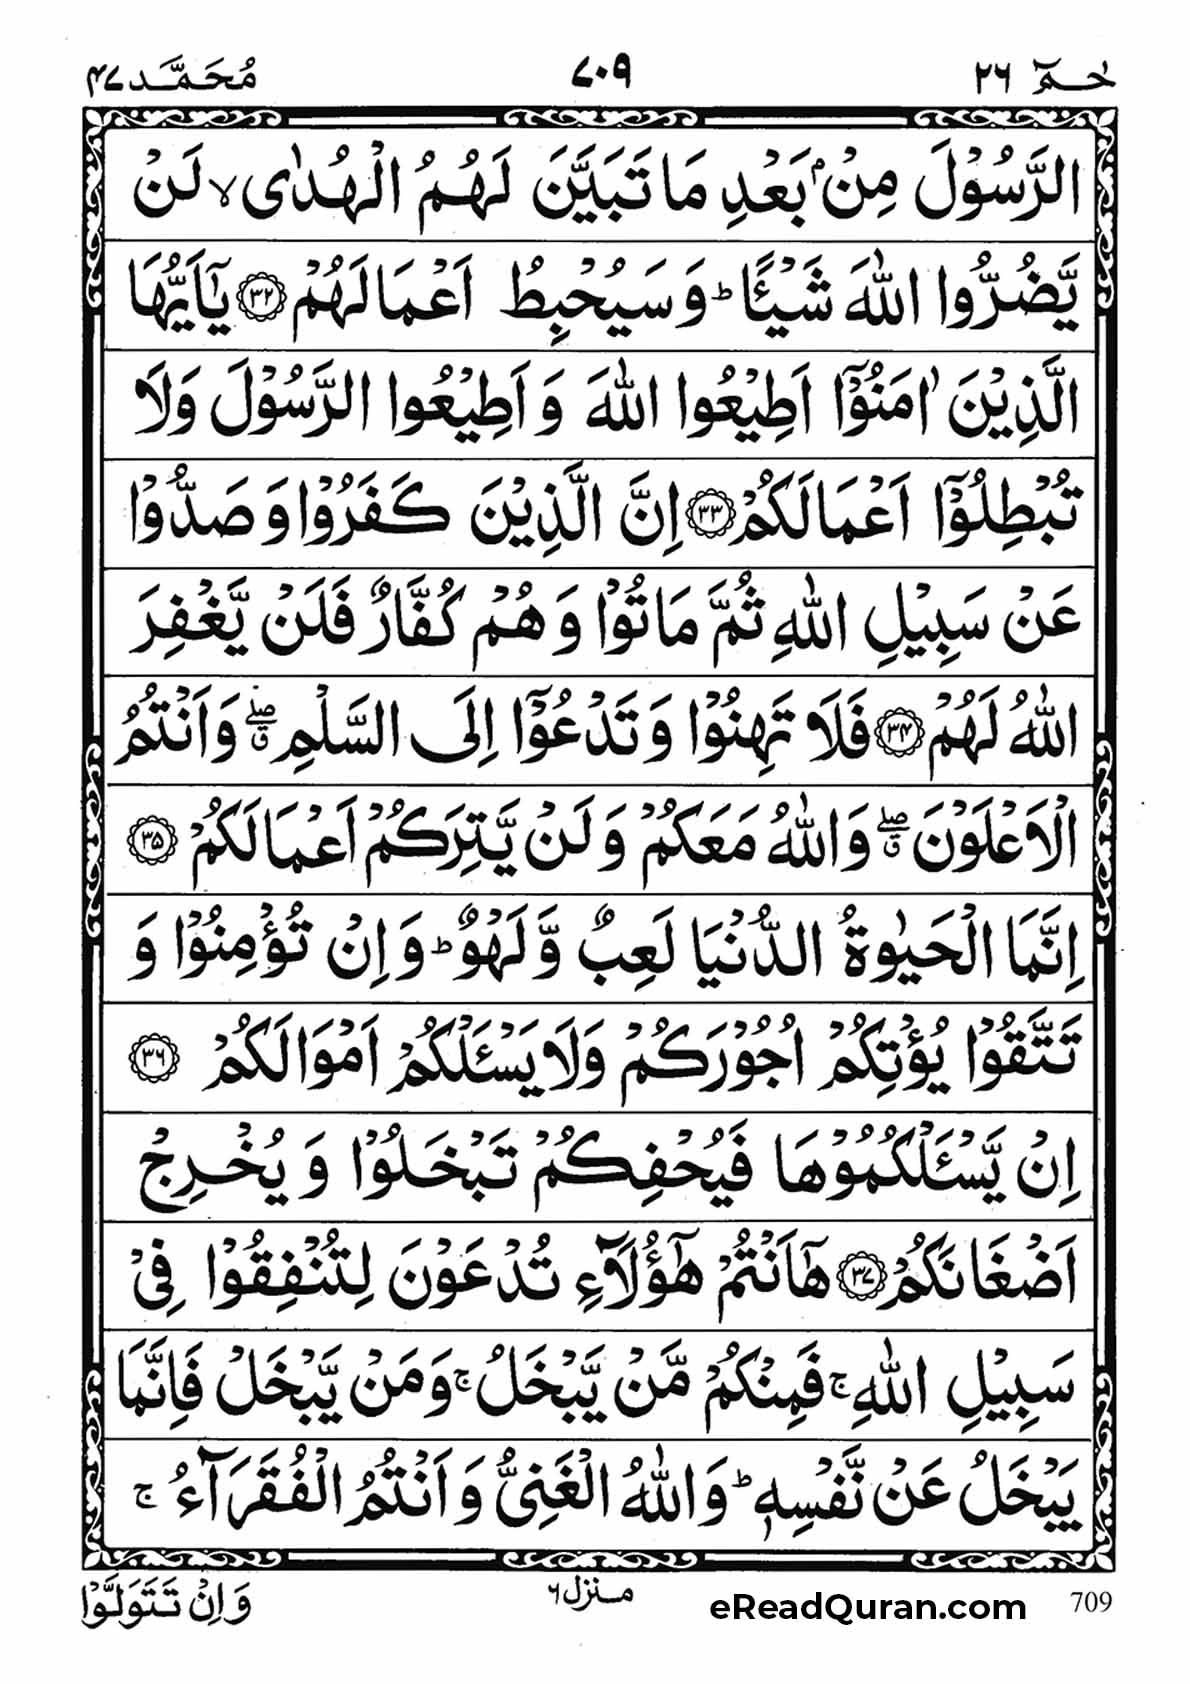 حٰمٓ ٢٦
٧٠٩
مُحَمَّد ٤٧
الرَّسُوْلَ مِنْۢ بَعْدِ مَا تَبَيَّنَ لَهُمُ الْهُدٰى ۙ لَنْ
يَّضُرُّوا اللّٰهَ شَيْـًٔا ؕ وَ سَيُحْبِطُ اَعْمَالَهُمْ ﴿۳۲﴾ يٰۤاَيُّهَا
الَّذِيْنَ اٰمَنُوْۤا اَطِيْعُوا اللّٰهَ وَ اَطِيْعُوا الرَّسُوْلَ وَلَا
تُبْطِلُوْۤا اَعْمَالَكُمْ ﴿۳۳﴾ اِنَّ الَّذِيْنَ كَفَرُوْا وَ صَدُّوْا
عَنْ سَبِيْلِ اللّٰهِ ثُمَّ مَاتُوْا وَ هُمْ كُفَّارٌ فَلَنْ يَّغْفِرَ
اللّٰهُ لَهُمْ ﴿۳۴﴾ فَلَا تَهِنُوْا وَ تَدْعُوْۤا اِلَى السَّلْمِ ۖۗ وَ اَنْتُمُ
الْاَعْلَوْنَ ۖۗ وَاللّٰهُ مَعَكُمْ وَ لَنْ يَّتِرَكُمْ اَعْمَالَكُمْ ﴿۳۵﴾
اِنَّمَا الْحَيٰوةُ الدُّنْيَا لَعِبٌ وَّ لَهْوٌ ؕ وَ اِنْ تُؤْمِنُوْا وَ
تَتَّقُوْا يُؤْتِكُمْ اُجُوْرَكُمْ وَلَا يَسْـَٔلْكُمْ اَمْوَالَكُمْ ﴿۳۶﴾
اِنْ يَّسْـَٔلْكُمُوْهَا فَيُحْفِكُمْ تَبْخَلُوْا وَ يُخْرِجْ
اَضْغَانَكُمْ ﴿۳۷﴾ هٰۤاَنْتُمْ هٰۤؤُلَآءِ تُدْعَوْنَ لِتُنْفِقُوْا فِيْ
سَبِيْلِ اللّٰهِ ۚ فَمِنْكُمْ مَّنْ يَّبْخَلُ ۚ وَمَنْ يَّبْخَلْ فَاِنَّمَا
يَبْخَلُ عَنْ نَّفْسِهٖ ؕ وَاللّٰهُ الْغَنِيُّ وَ اَنْتُمُ الْفُقَرَآءُ ۚ
709
eReadQuran.com
منزل ٦
وَ اِنْ تَتَوَلَّوْا